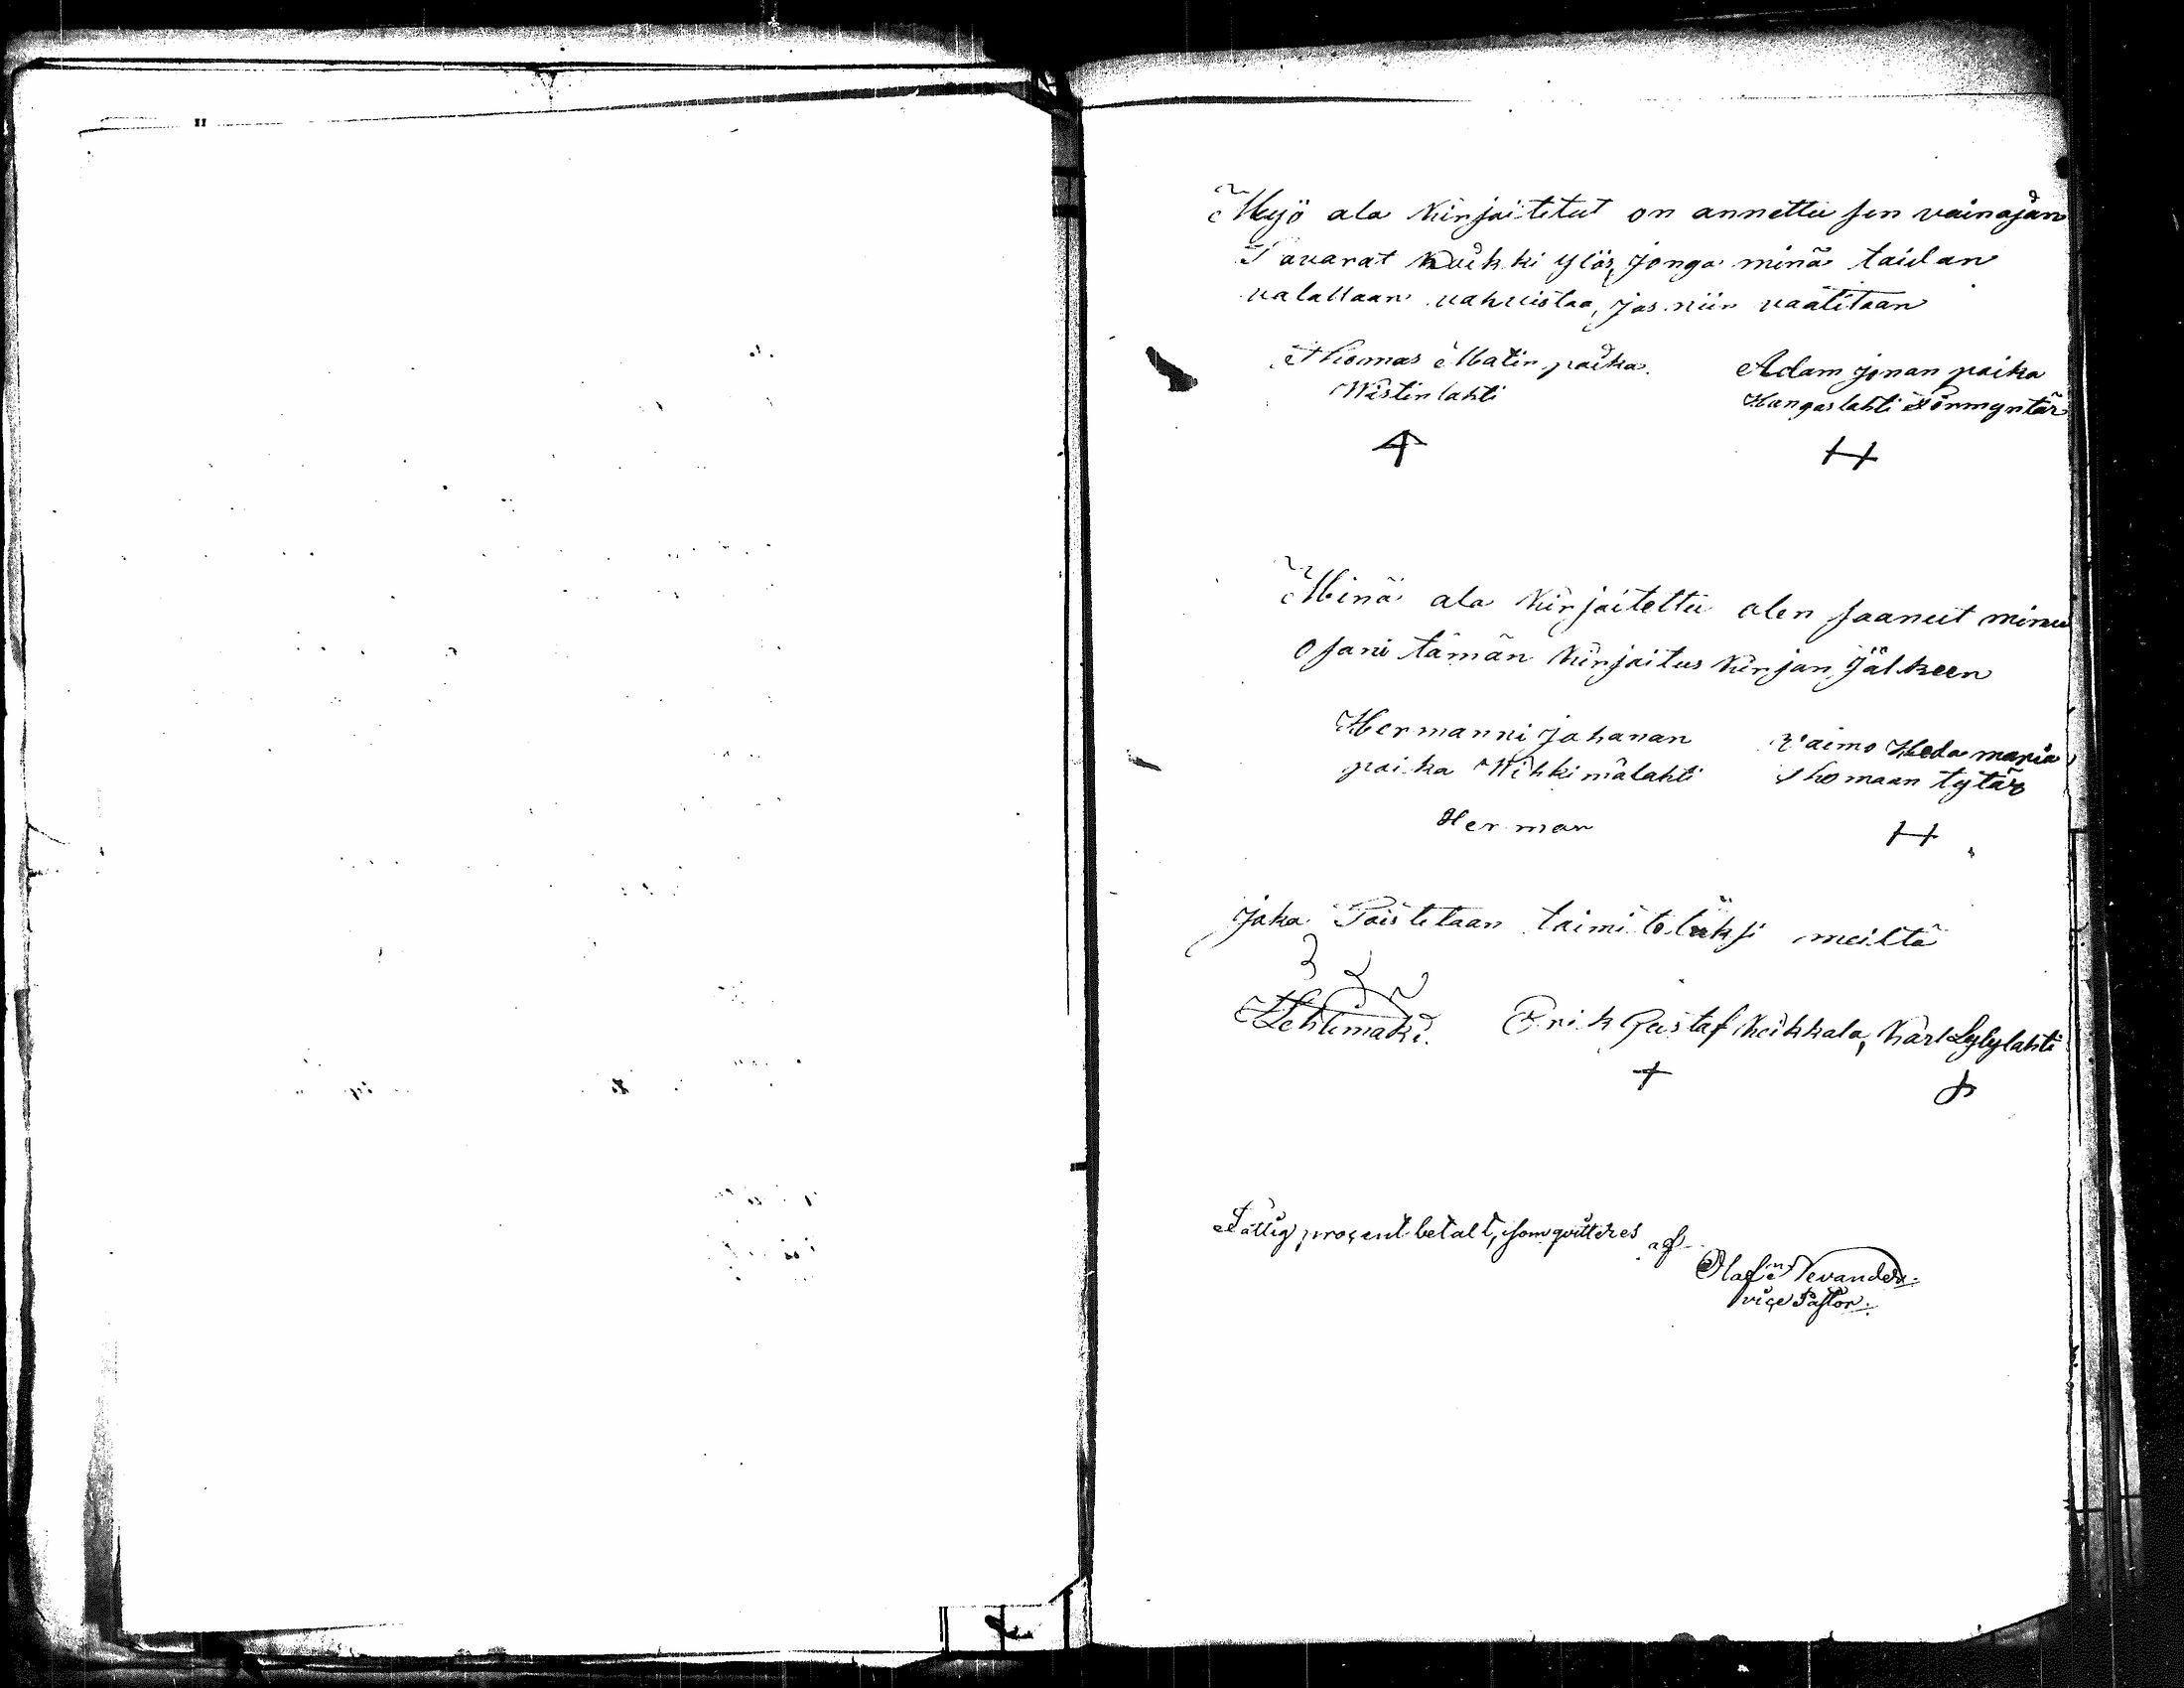 Myö ala kirjoitetut on annettu sen vainajan
Tavarat kaikki ylös, jonga minä taidan
valallaan vahvistaa, jos niin vaatitaan
Thomas Matin poika. Adam jonan poika
Wistinlahti Kangaslahti Förmyntär
H
Minä ala kirjoitettu olen saanut minu
osani tämän kirjoitus kirjan jälkeen
Hermanni johanan Vaimo Heda maria
poika Wihkimälahti Thomaan tytär
Herman H
joka Toistetaan toimitetuksi meiltä
Lehtimäki. Erik Gustaf Keikkala, Karl Lylylahti
+
Fattig procent betalt, som qvitteres af
Olaf Nevander.
vice Pastor.